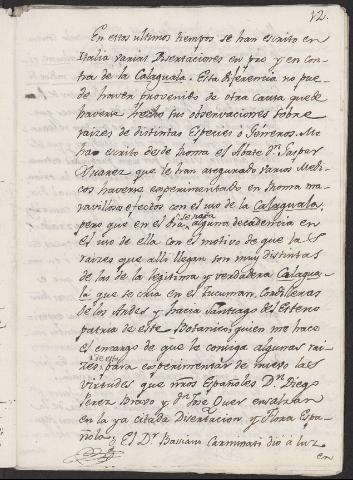 12.
En estos ultimos tiempos se han escrito en
Italia varias Disertaciones en pro y en con-
tra de la Calaguala. Esta diferencia no pue-
de haver provenido de otra causa que de
haverse hecho sus observaciones sobre
raizes de distintas Especies ó Generos. Me
ha escrito desde Roma el Abate Dn. Gaspar
Xuarez que le han asegurado varios Medi-
cos haverse experimentado en Roma ma-
ravillosos efectos con el uso de la Calaguala,
pero que en el dia se nota alguna decadencia en
el uso de ella con el motivo de que las
raizes que alli llegan son muy distintas
de las de la legitima y verdadera Calagua-
la que se cria en el Tucuman, Cordilleras
de los Andes y hacia Santiago del Estero
patria de este Botanico; quien me hace
el encargo de que le consiga algunas rai-
zes para experimentar de nuevo las
virtudes que nros Españoles Dn. Diego
Perez Bravo y Dn. José Quer ensalzan
en la ya citada Disertacion, y Flora Espa-
ñola. El Dr. Bassiani Carminati dió á luz
en